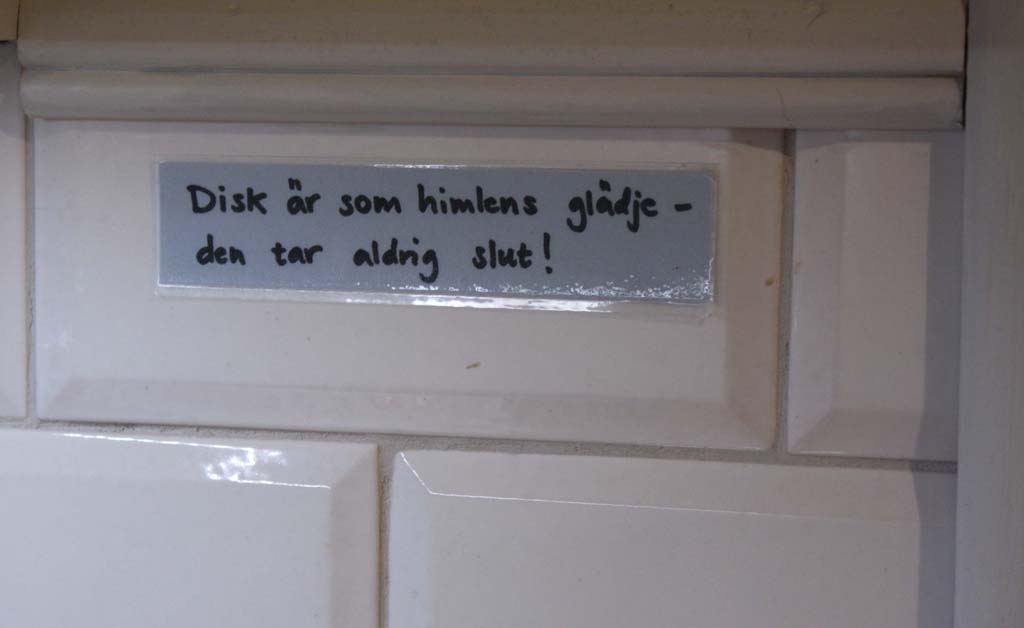 Disk är som himlens glädje -
den tar aldrig slut!